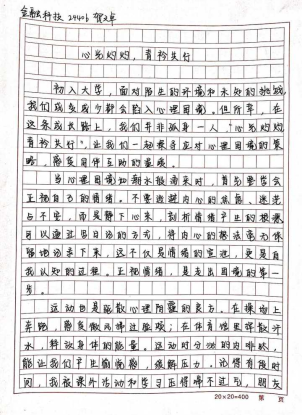 金融科技 2440b 贺文卓
心光灼灼，青衿共行
初入大学，面对陌生的环境和未知的挑战，
我们或多或少都会陷入心理困境。但所幸，在
这条成长路上，我们并非孤身一人，"心光灼灼
青衿共行"，让我们一起探寻应对心理困境的策
略，感受同伴互助的温暖。
当心理困境如潮水般涌来时，首先要学会
正视自己的情绪。不要逃避内心的焦虑、迷茫
与不安，而是静下心来，剖析情绪产生的根源
可以通过写日记的方式，将内心的想法毫无保
留地记录下来，这不仅是情绪的宣泄，更是自
我认知的过程。正视情绪，是走出困境的第一
步。
运动也是驱散心理阴霾的良方。在操场上
奔跑，感受微风拂过脸颊；在体育馆里挥散汗
水，释放身体的能量。运动时分泌的内啡肽，
能让我们产生愉悦感，缓解压力。记得有段时
间，我被课外活动和学习压得喘不过气，朋友
20×20=400 第 页